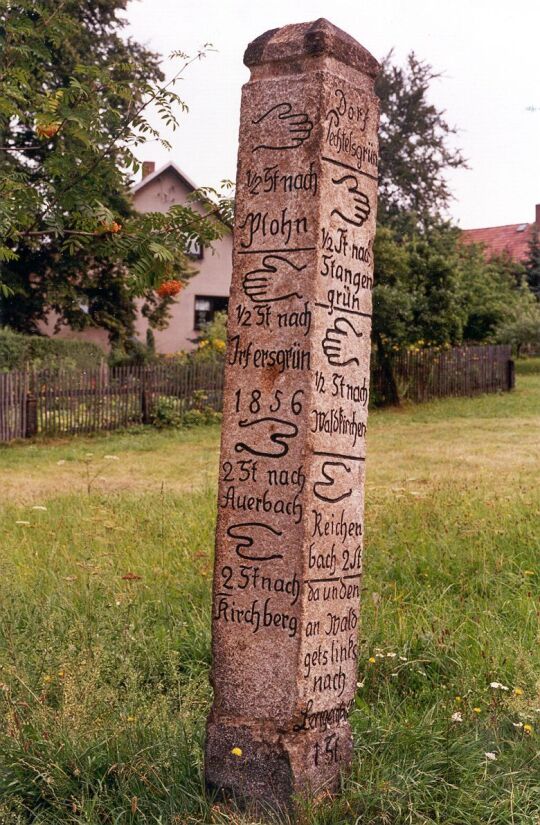 ½ St nach
Plohn
½ St nach
Irfersgrün
1856
2 St nach
Auerbach
2 St nach
Kirchberg
Dorf
Pechtelsgrün
½ St nach
Stangen
grün
½ St nach
Waldkirchen
Reichen
bach 2 St
da unden
an Wald
gets links
nach
1 St